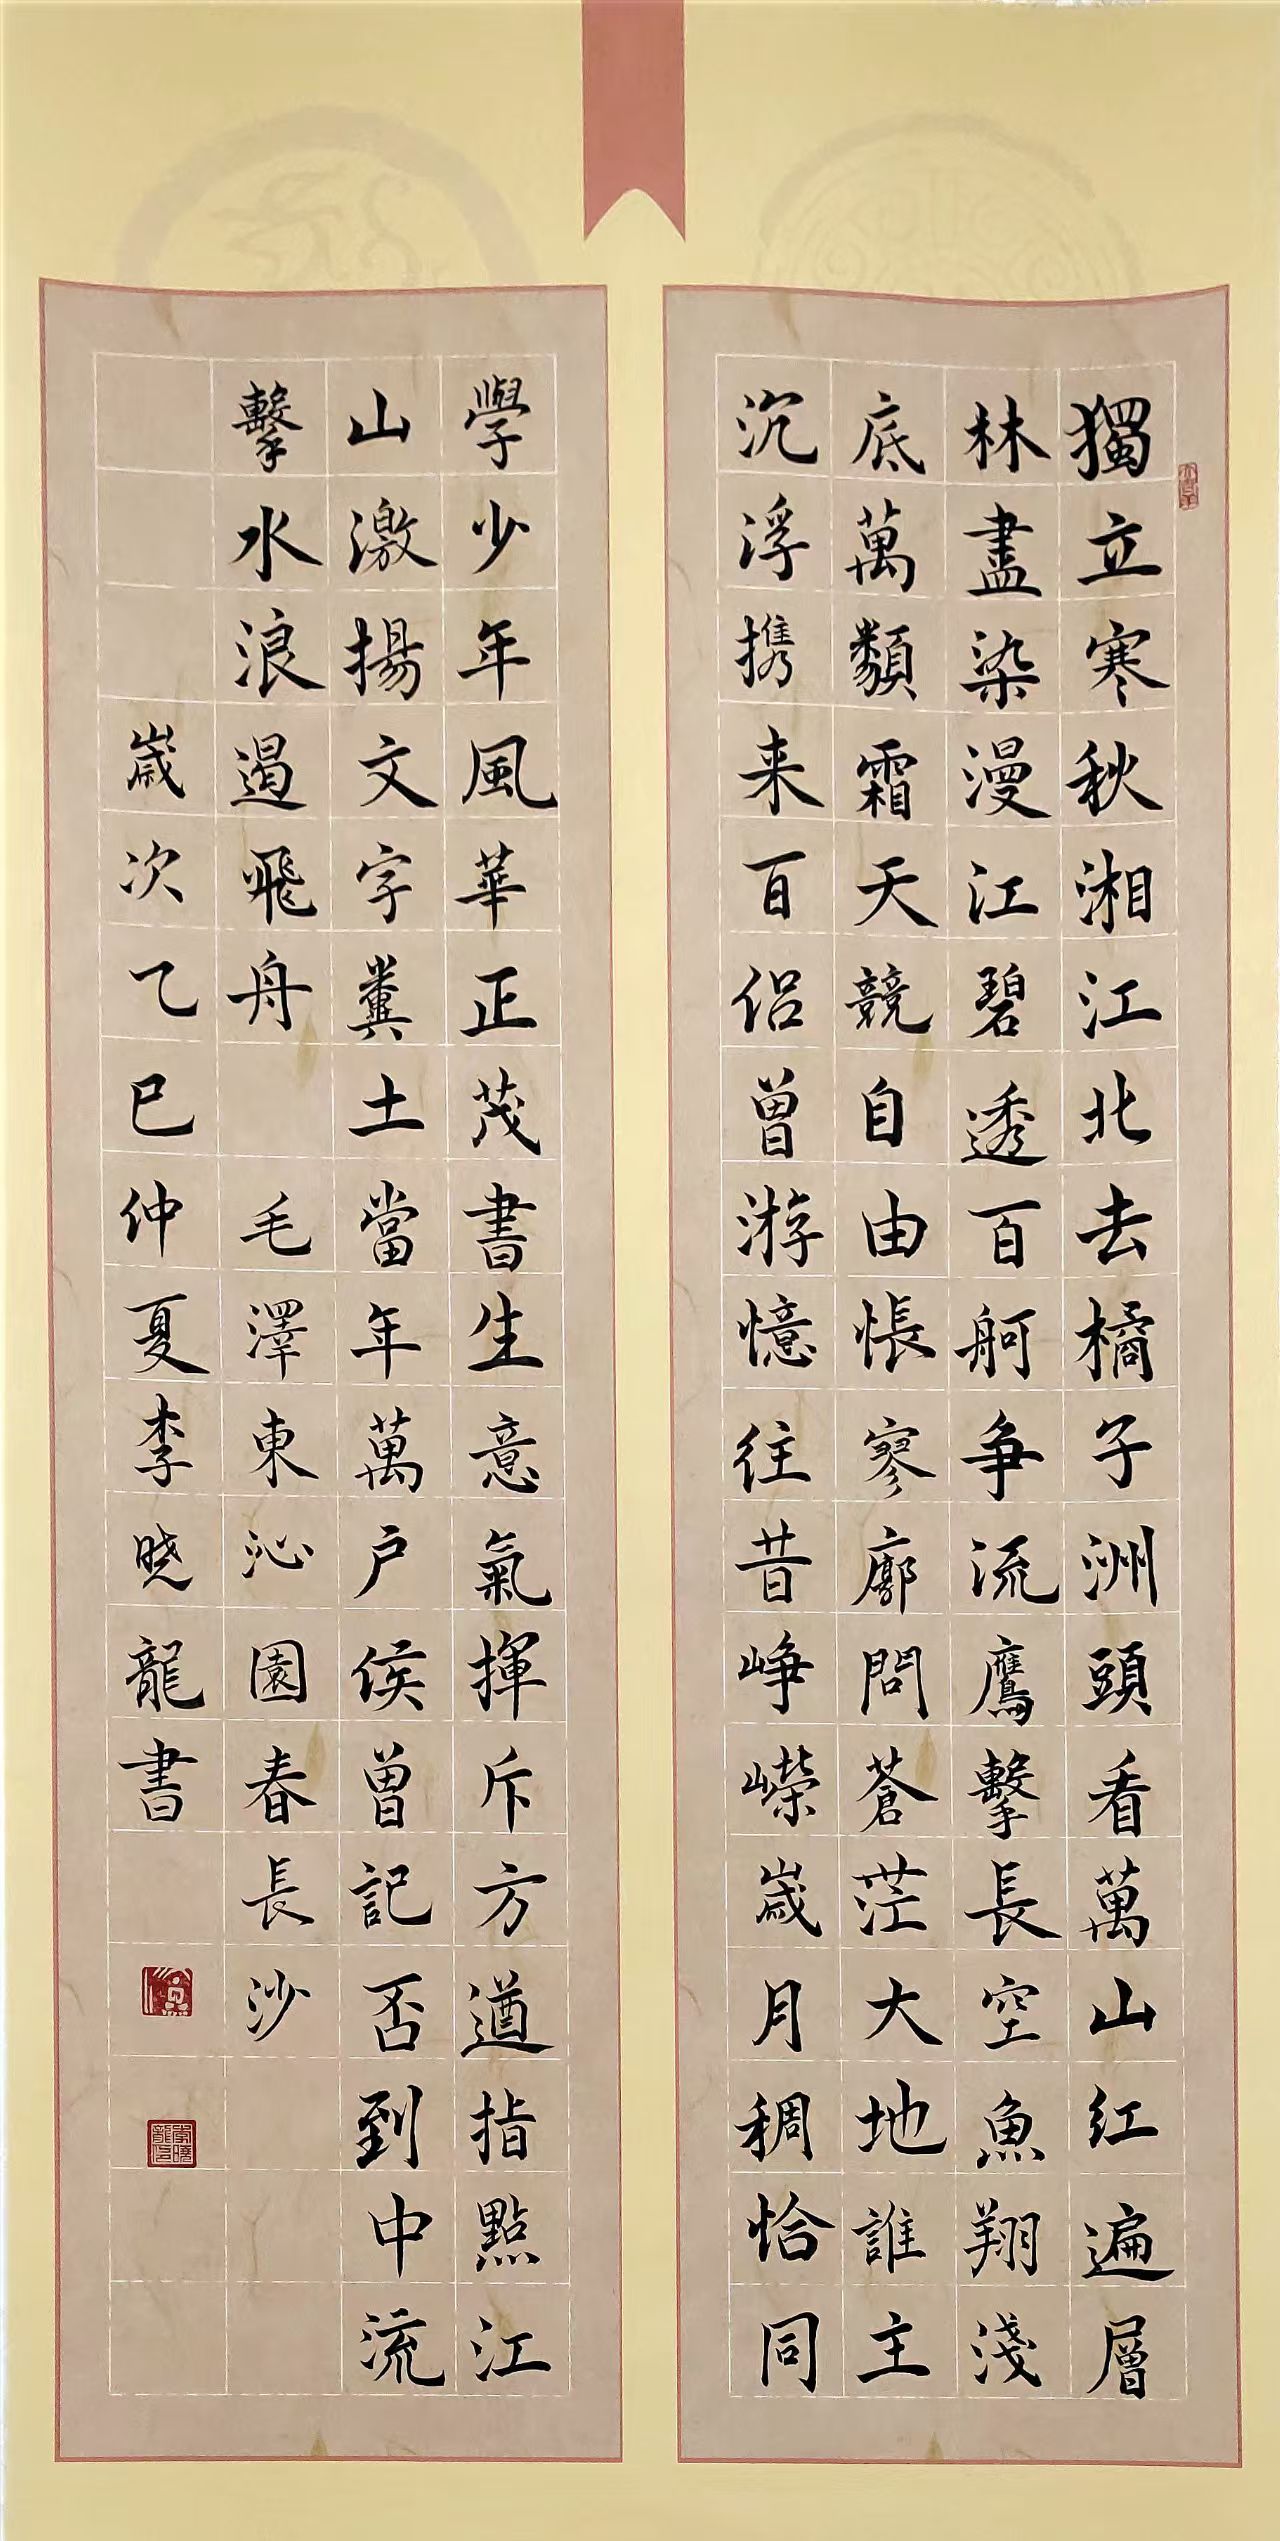 獨立寒秋湘江北去橘子洲頭看萬山红遍層
林盡染漫江碧透百舸争流鷹擊長空魚翔淺
底萬類霜天競自由悵寥廓問蒼茫大地誰主
沉浮携来百侣曾游憶往昔崢嶸歲月稠恰同
學少年風華正茂書生意氣揮斥方遒指點江
山激揚文字糞土當年萬户侯曾記否到中流
擊水浪遏飛舟 毛澤東沁園春長沙
歲次乙巳仲夏李晓龍書